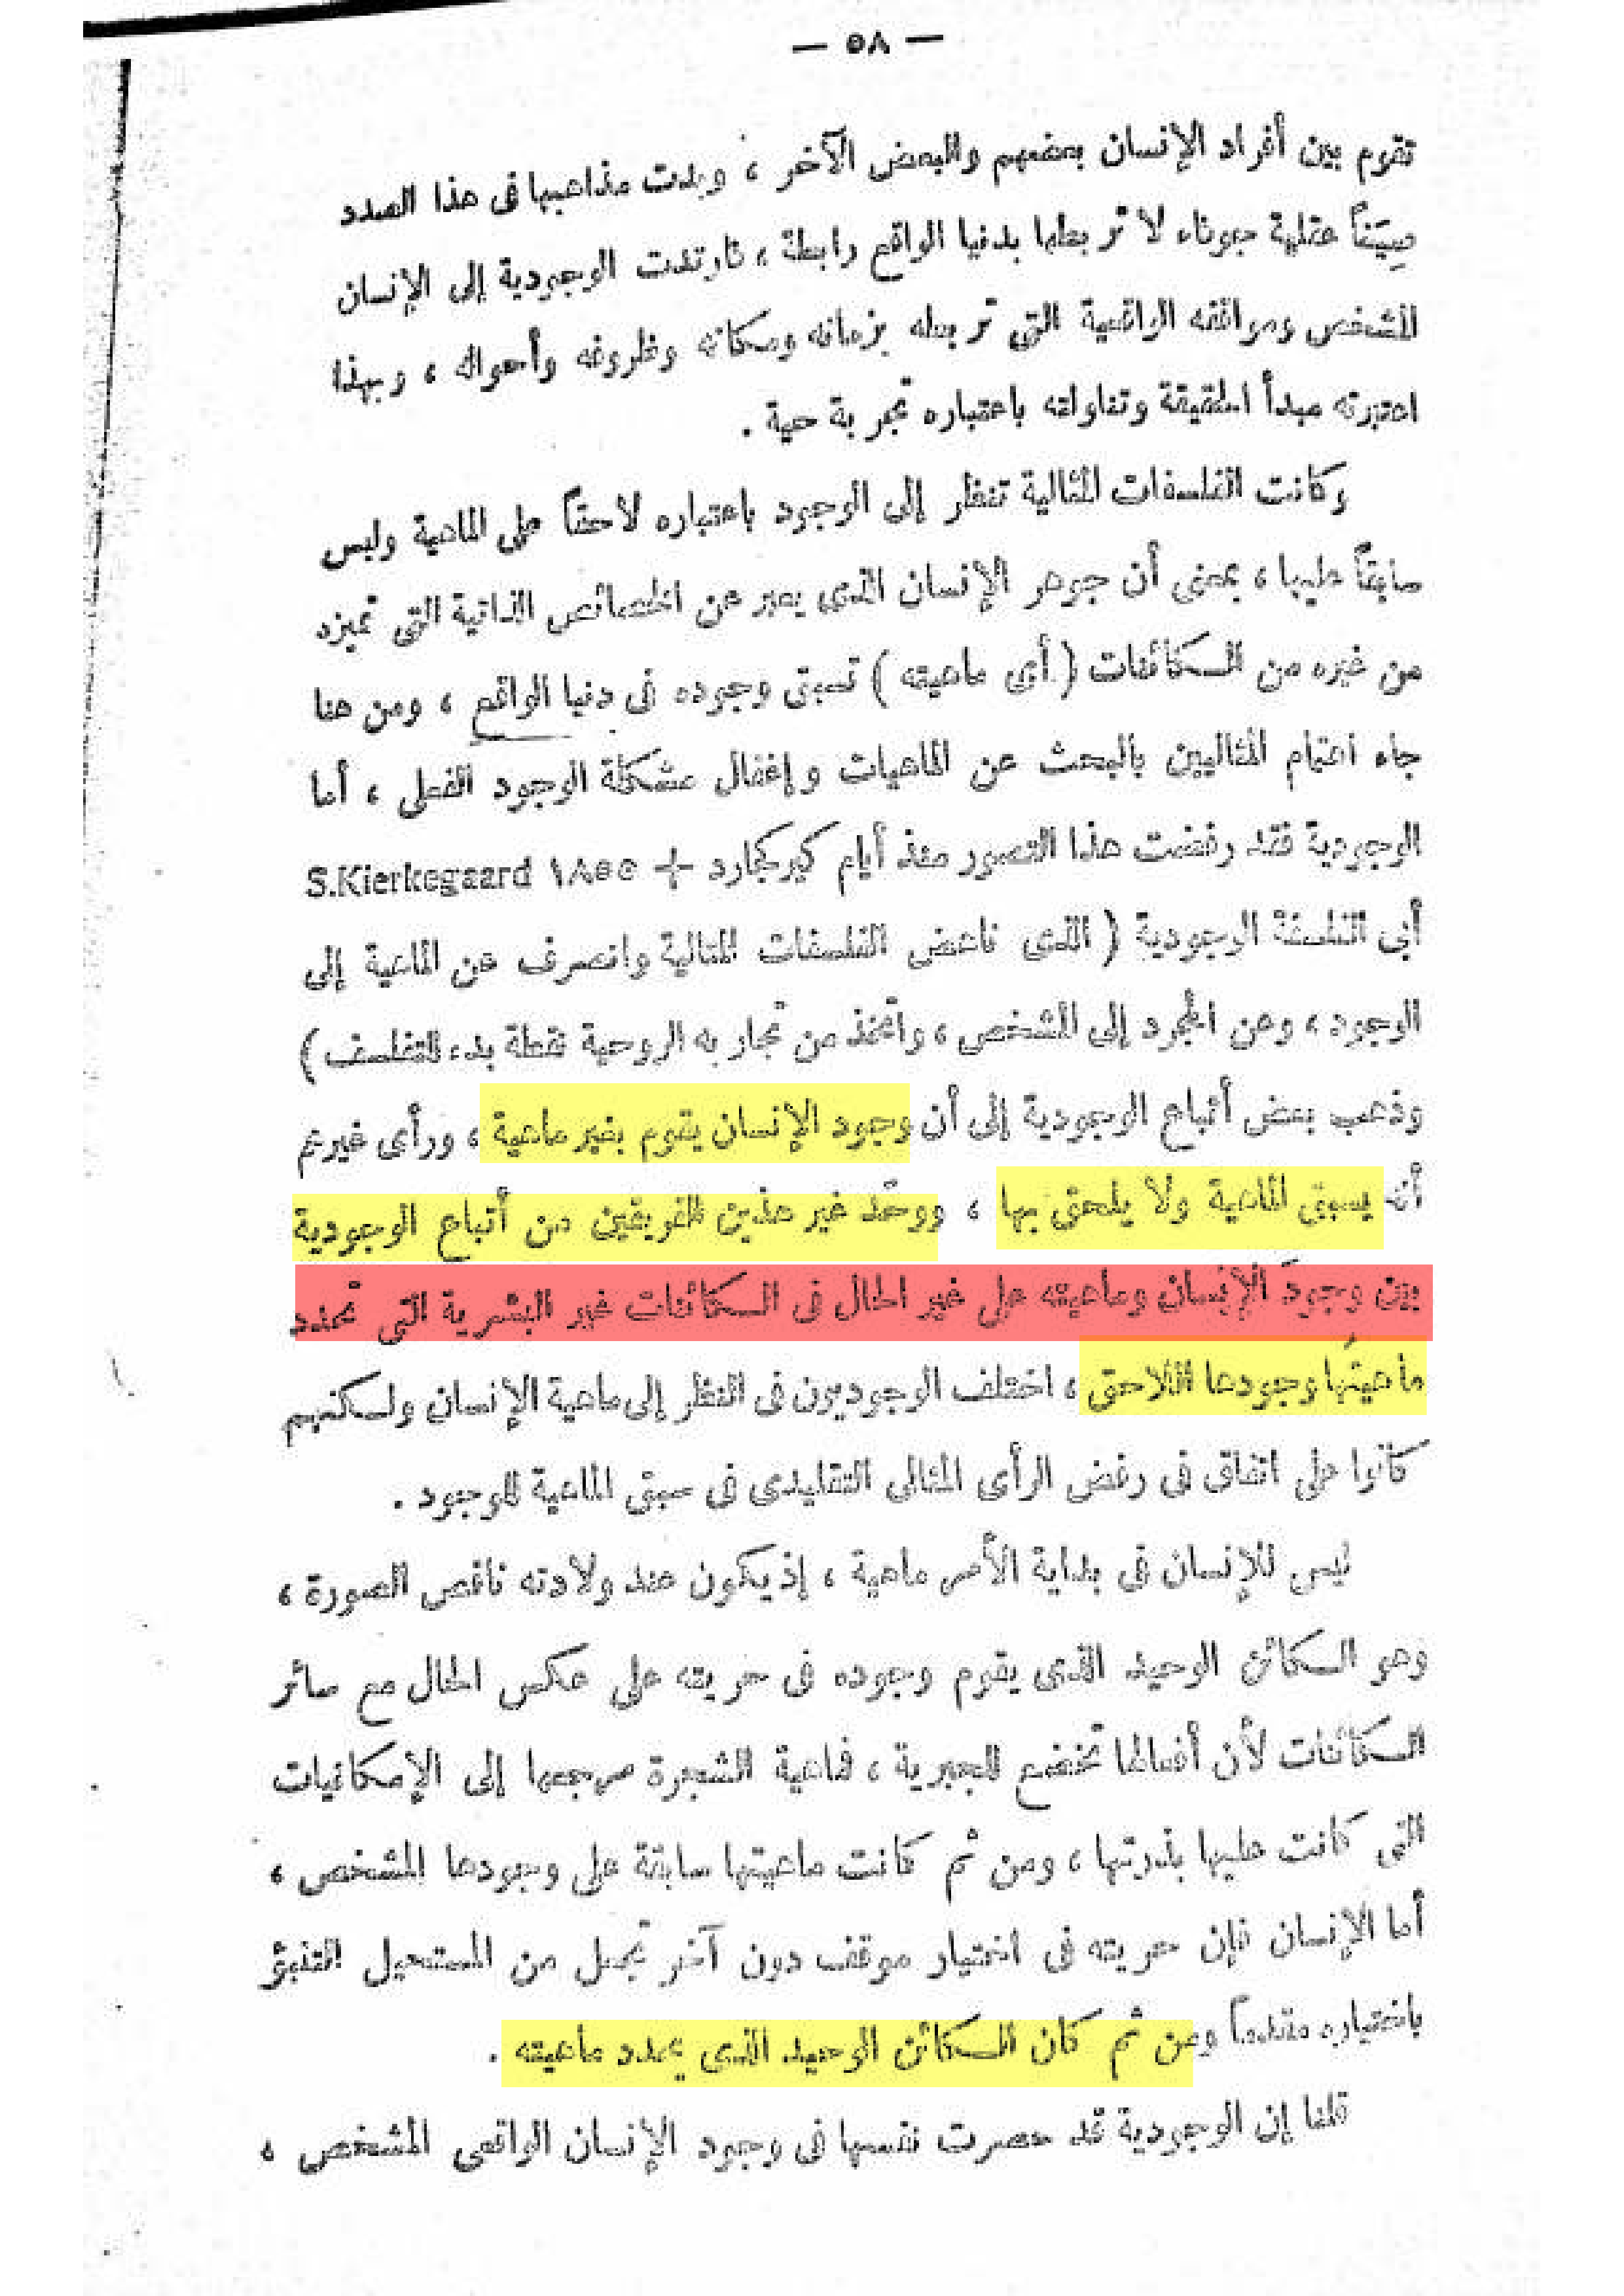 — ٥٨ —
تقوم بين أفراد الإنسان بعضهم والبعض الآخر ، وبدت مذاهبها فى هذا الصدد
صِيَغاً عقلية جوفاء لا تربطها بدنيا الواقع رابطة ، فارتدت الوجودية إلى الإنسان
المشخص ومواقفه الواقعية التى تربطه بزمانه ومكانه وظروفه وأحواله ، وبهذا
اعتبرته مبدأ الحقيقة وتناولته باعتباره تجربة حية .
وكانت الفلسفات المثالية تنظر إلى الوجود باعتباره لاحقاً على الماهية وليس
سابقاً عليها ، بمعنى أن جوهر الإنسان الذى يعبر عن الخصائص الذاتية التى تميزه
من غيره من الكائنات ( أى ماهيته ) تسبق وجوده فى دنيا الواقع ، ومن هنا
جاء اهتمام المثاليين بالبحث عن الماهيات وإغفال مشكلة الوجود الفعلى ، أما
الوجودية فقد رفضت هذا التصور منذ أيام كيركجارد + ١٨٥٥ S.Kierkegaard
أبى الفلسفة الوجودية ( الذى ناهض الفلسفات المثالية وانصرف عن الماهية إلى
الوجود ، وعن المجرد إلى المشخص ، واتخذ من تجاربه الروحية نقطة بدء للتفلسف )
وذهب بعض أتباع الوجودية إلى أن وجود الإنسان يقوم بغير ماهية ، ورأى غيرهم
أنه يسبق الماهية ولا يلحق بها ، ووحَّد غير هذين الفريقين من أتباع الوجودية
بين وجود الإنسان وماهيته على غير الحال فى الكائنات غير البشرية التى تحدد
ماهيتُها وجودها اللاحق ، اختلف الوجوديون فى النظر إلى ماهية الإنسان ولكنهم
كانوا على اتفاق فى رفض الرأى المثالى التقليدى فى سبق الماهية للوجود .
ليس للإنسان فى بداية الأمر ماهية ، إذ يكون عند ولادته ناقص الصورة ،
وهو الكائن الوحيد الذى يقوم وجوده فى حريته على عكس الحال مع سائر
الكائنات لأن أفعالها تخضع للجبرية ، فماهية الشجرة مرجعها إلى الإمكانيات
التى كانت عليها بذرتها ، ومن ثم كانت ماهيتها سابقة على وجودها المشخص ،
أما الإنسان فإن حريته فى اختيار موقف دون آخر تجعل من المستحيل التنبؤ
باختياره مقدماً ومن ثم كان الكائن الوحيد الذى يحدد ماهيته .
قلنا إن الوجودية قد حصرت نفسها فى وجود الإنسان الواقعى المشخص ،